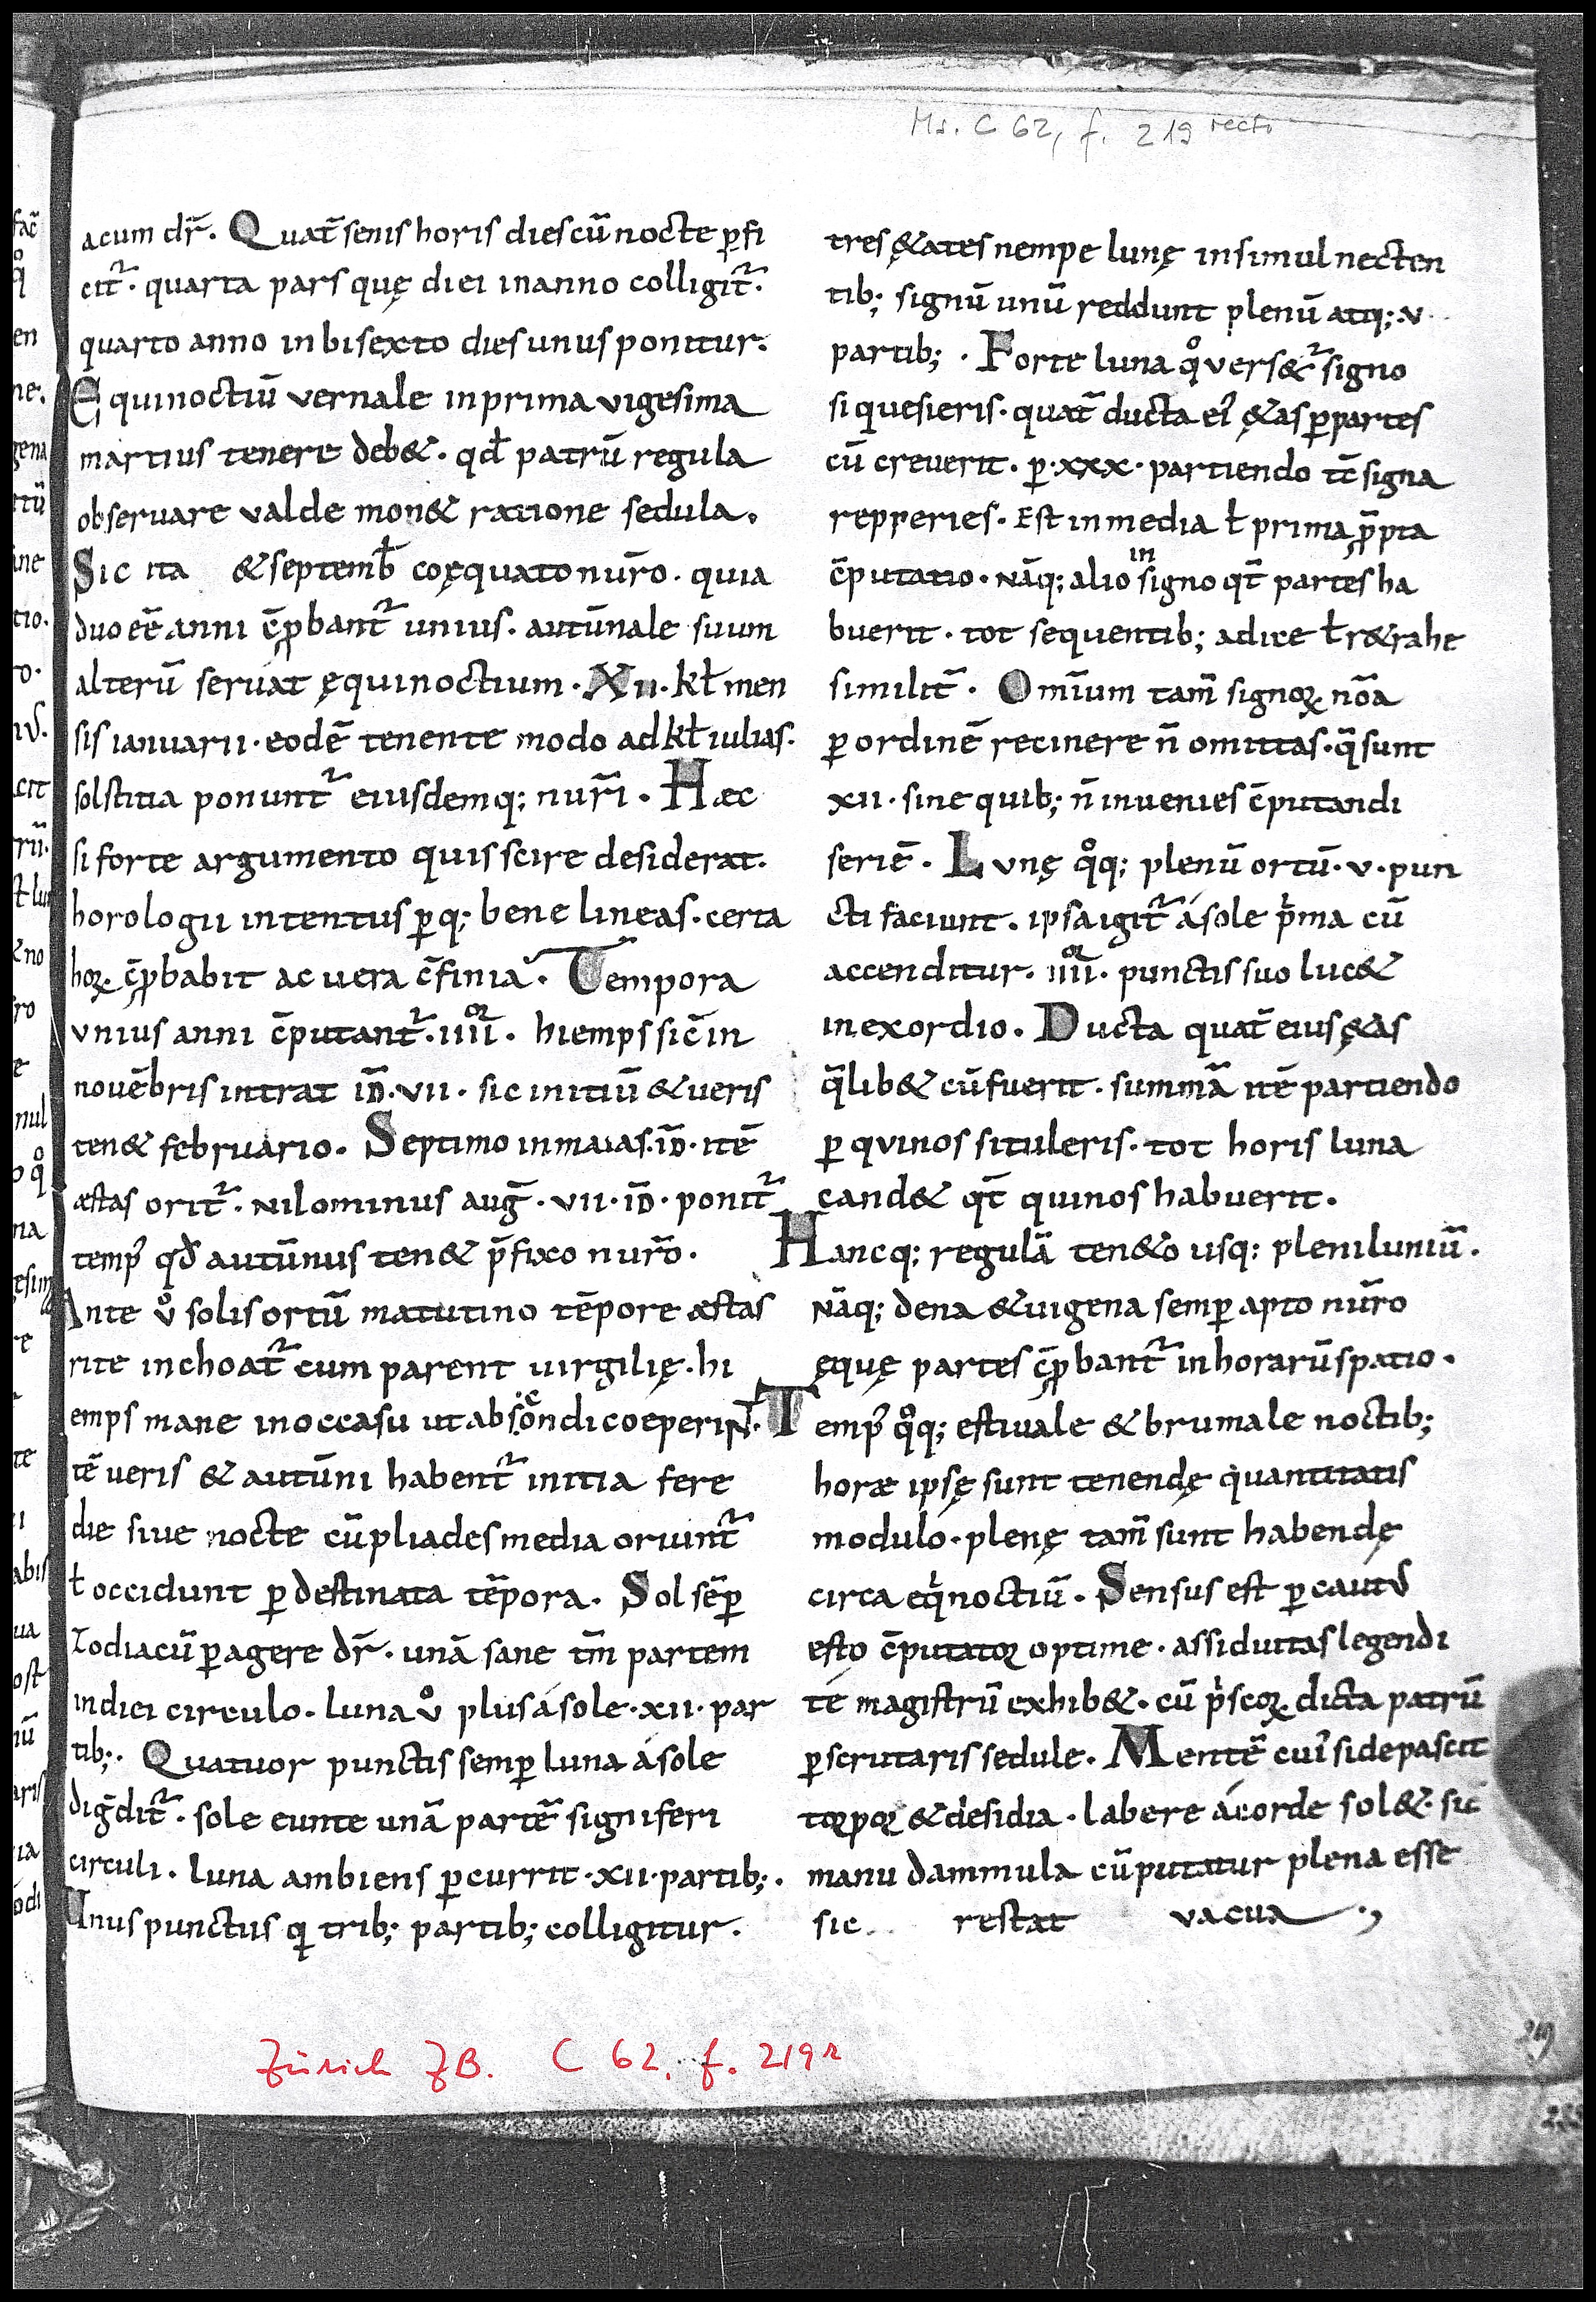 Ms. C 62, f. 219 recto
acum dr̄. Quat̄ senis horis dies cū nocte ꝑfi
citᷣ. quarta pars quę diei in anno colligitᷣ.
quarto anno in bisexto dies unus ponitur.
Equinoctiū vernale in prima vigesima
martius tenere deb&. qđ patrū regula
observare valde mon& ratione sedula.
Sic ita & septemb̄ coęquato nūro. quia
duo eē anni c̄ꝓbantᷣ unius. autūnale suum
alterū servat ęquinoctium. XII. kƚ men
sis ianuarii. eodē tenente modo ad kƚ iulias.
solstitia ponuntᷣ eiusdemq; nūri. Hæc
si forte argumento quis scire desiderat.
horologii intentus ꝑq; bene lineas. certa
hoꝝ c̄ꝓbabit ac vera c̄finia. Tempora
vnius anni c̄putantᷣ. IIIIoꝛ. hiemps sic̄ in
novēbris intrat id̄. VII. sic initiū & veris
ten& februario. Septimo in maias. id̄. itē
æstas oritᷣ. nilominus auḡ. VII. id̄. ponitᷣ
temp᾽ qđ autūnus ten& p̄fixo nūro.
Ante v̊ solis ortū matutino tēpore æstas
rite inchoatᷣ cum parent virgilię. hi
emps mane in occasu ut abscondi coeperiNT.
tē veris & autūni habentᷣ initia fere
die sive nocte cū pliades media oriuntᷣ
ƚ occidunt ꝑ destinata tēpora. Sol sēꝑ
zodiacū ꝑagere dr̄. unā sane tm̄ partem
in diei circulo. luna v̊ plus á sole. XII. par
tib;. Quatuor punctis semꝑ luna á sole
diḡditᷣ. sole eunte unā partē signiferi
circuli. luna ambiens ꝑcurrit. XII. partib;.
Unus punctus qi trib; partib; colligitur.
tres ę&ates nempe lunę in simul necten
tib; signū unū reddunt plenū atq; .v.
partib;. Forte luna q̊ vers&ᷣ signo
si quesieris. quat̄ ducta ei᾽ ę&as ꝑ partes
cū creverit. ꝑ. XXX. partiendo tē signa
repperies. Est in media ƚ prima ꝓpta
c̄putatio. nāq; alio in signo qt̄ partes ha
buerit. tot sequentib; adice ƚ r&rahe
similit̄. Omīum tam̄ signoꝝ nōa
ꝑ ordinē recinere n̄ omittas. q̄ sunt
XII. sine quib; n̄ invenies c̄putandi
seriē. Lvnę q̊q; plenū ortū. v. pun
cti faciunt. ipsa igitᷣ á sole p̍ma cū
accenditur. IIIIoꝛ. punctis suo luc&
in exordio. Ducta quat̄ eius ę&as
q̄lib& cū fuerit. summā itē partiendo
ꝑ qvinos si tuleris. tot horis luna
cand& qt̄ quinos habuerit.
Hancq; regulā ten&o usq; pleniluniū.
Nāq; dena & vigena semꝑ apto nūro
ęquę partes c̄ꝓbantᷣ in horarū spatio.
Temp᾽ q̊q; estivale & brumale noctib;
horæ ipsę sunt tenendę quantitatis
modulo. plenę tam̄ sunt habendę
circa eq̍noctiū. Sensus est ꝑcaut᾽
esto c̄putatoꝛ optime. assiduitas legendi
té magistrū exhib&. cū p̍scoꝝ dicta patrū
ꝑscrutaris sedule. Mentē cui᾽ si depascit
toꝛpoꝛ & desidia. labere á corde sol& sic̄
manu dammula cū putatur plena esse
sic restat vacua.,
Zürich ZB. C 62, f. 219r
219